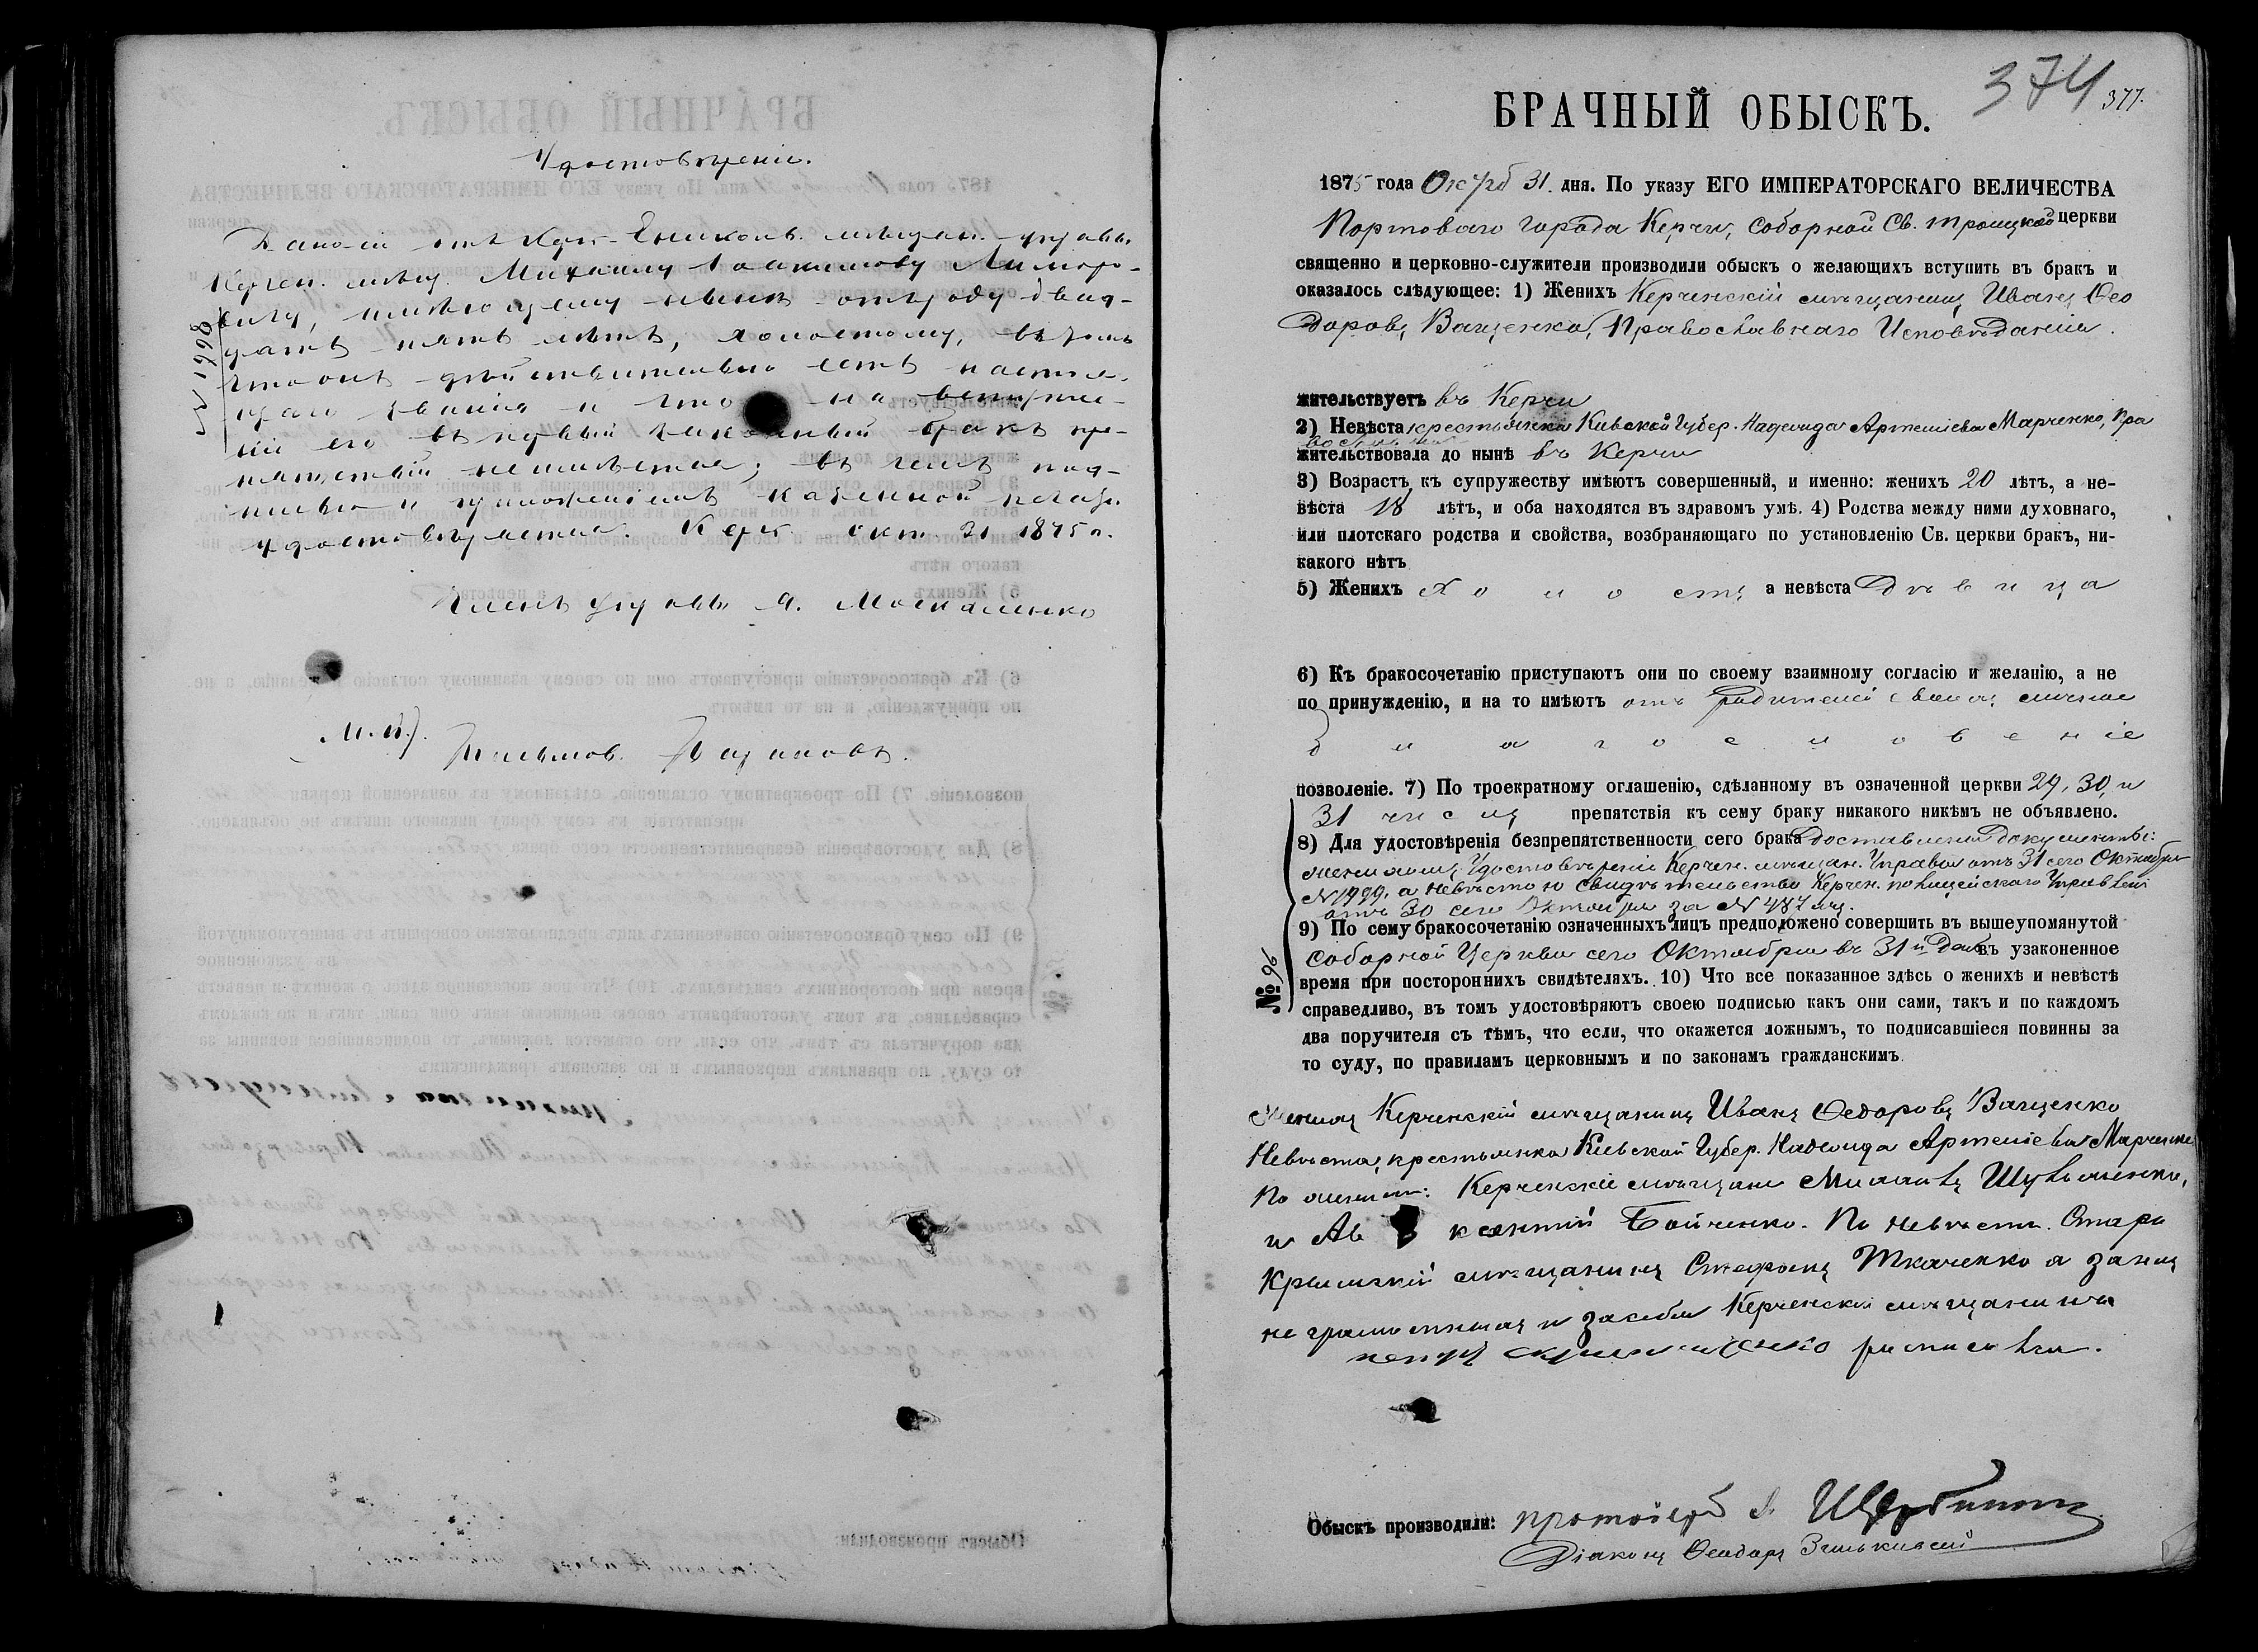 Удостовѣреніе.
№ 1998
Дано сіе отъ Керч-Еникольс. мѣщан. управы
Керчен. мѣщ. Михаилу Іоакимову
имѣющему нынѣ отъ роду двад-
цать пять лѣтъ, холостому, въ томъ
что онъ дѣйствительно есть
званія и что на вступле-
ніе его въ первый законный бракъ пре-
пятствій неимѣется; въ чемъ под-
писью и приложеніемъ казенной печати
удостовѣряется. Керчь. Окт. 31 1875 г.
Членъ управы А. Москаленко
М.П.
374
377.
БРАЧНЫЙ ОБЫСКЪ.
1875 года Октрб 31. дня. По указу ЕГО ИМПЕРАТОРСКАГО ВЕЛИЧЕСТВА
Портоваго города Керчи, Соборной Св. Троицкой церкви
священно и церковно-служители производили обыскъ о желающихъ вступить въ бракъ и
оказалось слѣдующее: 1) Женихъ Керченскій мѣщанинъ Иванъ Ѳео
доровъ Ващенко, Православнаго Исповѣданія.
жительствуетъ въ Керчи
2) Невѣста крестьянка Киевской Губер. Надежда Артеміева Марченко, Пра
вославная
жительствовала до нынѣ въ Керчи
3) Возрастъ къ супружеству имѣютъ совершенный, и именно: женихъ 20 лѣтъ, а не-
вѣста 18 лѣтъ, и оба находятся въ здравомъ умѣ. 4) Родства между ними духовнаго,
или плотскаго родства и свойства, возбраняющаго по установленію Св. церкви бракъ, ни-
какого нѣтъ
5) Женихъ Холостъ а невѣста Дѣвица
6) Къ бракосочетанію приступаютъ они по своему взаимному согласію и желанію, а не
по принужденію, и на то имѣютъ отъ родителей своихъ личное
благословеніе
позволеніе. 7) По троекратному оглашенію, сдѣланному въ означенной церкви 29, 30, и
31 числъ препятствія къ сему браку никакого никѣмъ не объявлено.
8) Для удостовѣренія безпрепятственности сего брака доставлены документы:
женихомъ, Удостовѣреніе Керчен. мѣщан. Управы отъ 31 сего Октября
№ 1999, а невѣстою свидѣтельство Керчен. полицейскаго Управленія
отъ 30 сего Октября за №
№ 96
9) По сему бракосочетанію означенныхъ лицъ предположено совершить въ вышеупомянутой
Соборной Церкви сего Октября въ 31й день въ узаконенное
время при постороннихъ свидѣтеляхъ. 10) Что все показанное здѣсь о женихѣ и невѣстѣ
справедливо, въ томъ удостовѣряютъ своею подписью какъ они сами, такъ и по каждомъ
два поручителя съ тѣмъ, что если, что окажется ложнымъ, то подписавшіеся повинны за
то суду, по правиламъ церковнымъ и по законамъ гражданскимъ.
Женихъ Керченскій мѣщанинъ Иванъ Ѳедоровъ Ващенко
Невѣста, крестьянка Киевской Губер. Надежда Артеміева Марченко
По женихѣ: Керченскіе мѣщане
и Авксентій Бойченко. По невѣстѣ. Старо
Крымскій мѣщанинъ Стефанъ Ткаченко а за нихъ
не грамотныхъ и за себя Керченскій мѣщанинъ
росписался.
Обыскъ производили: протоіерей
Діаконъ Ѳеодоръ Зеньковскій